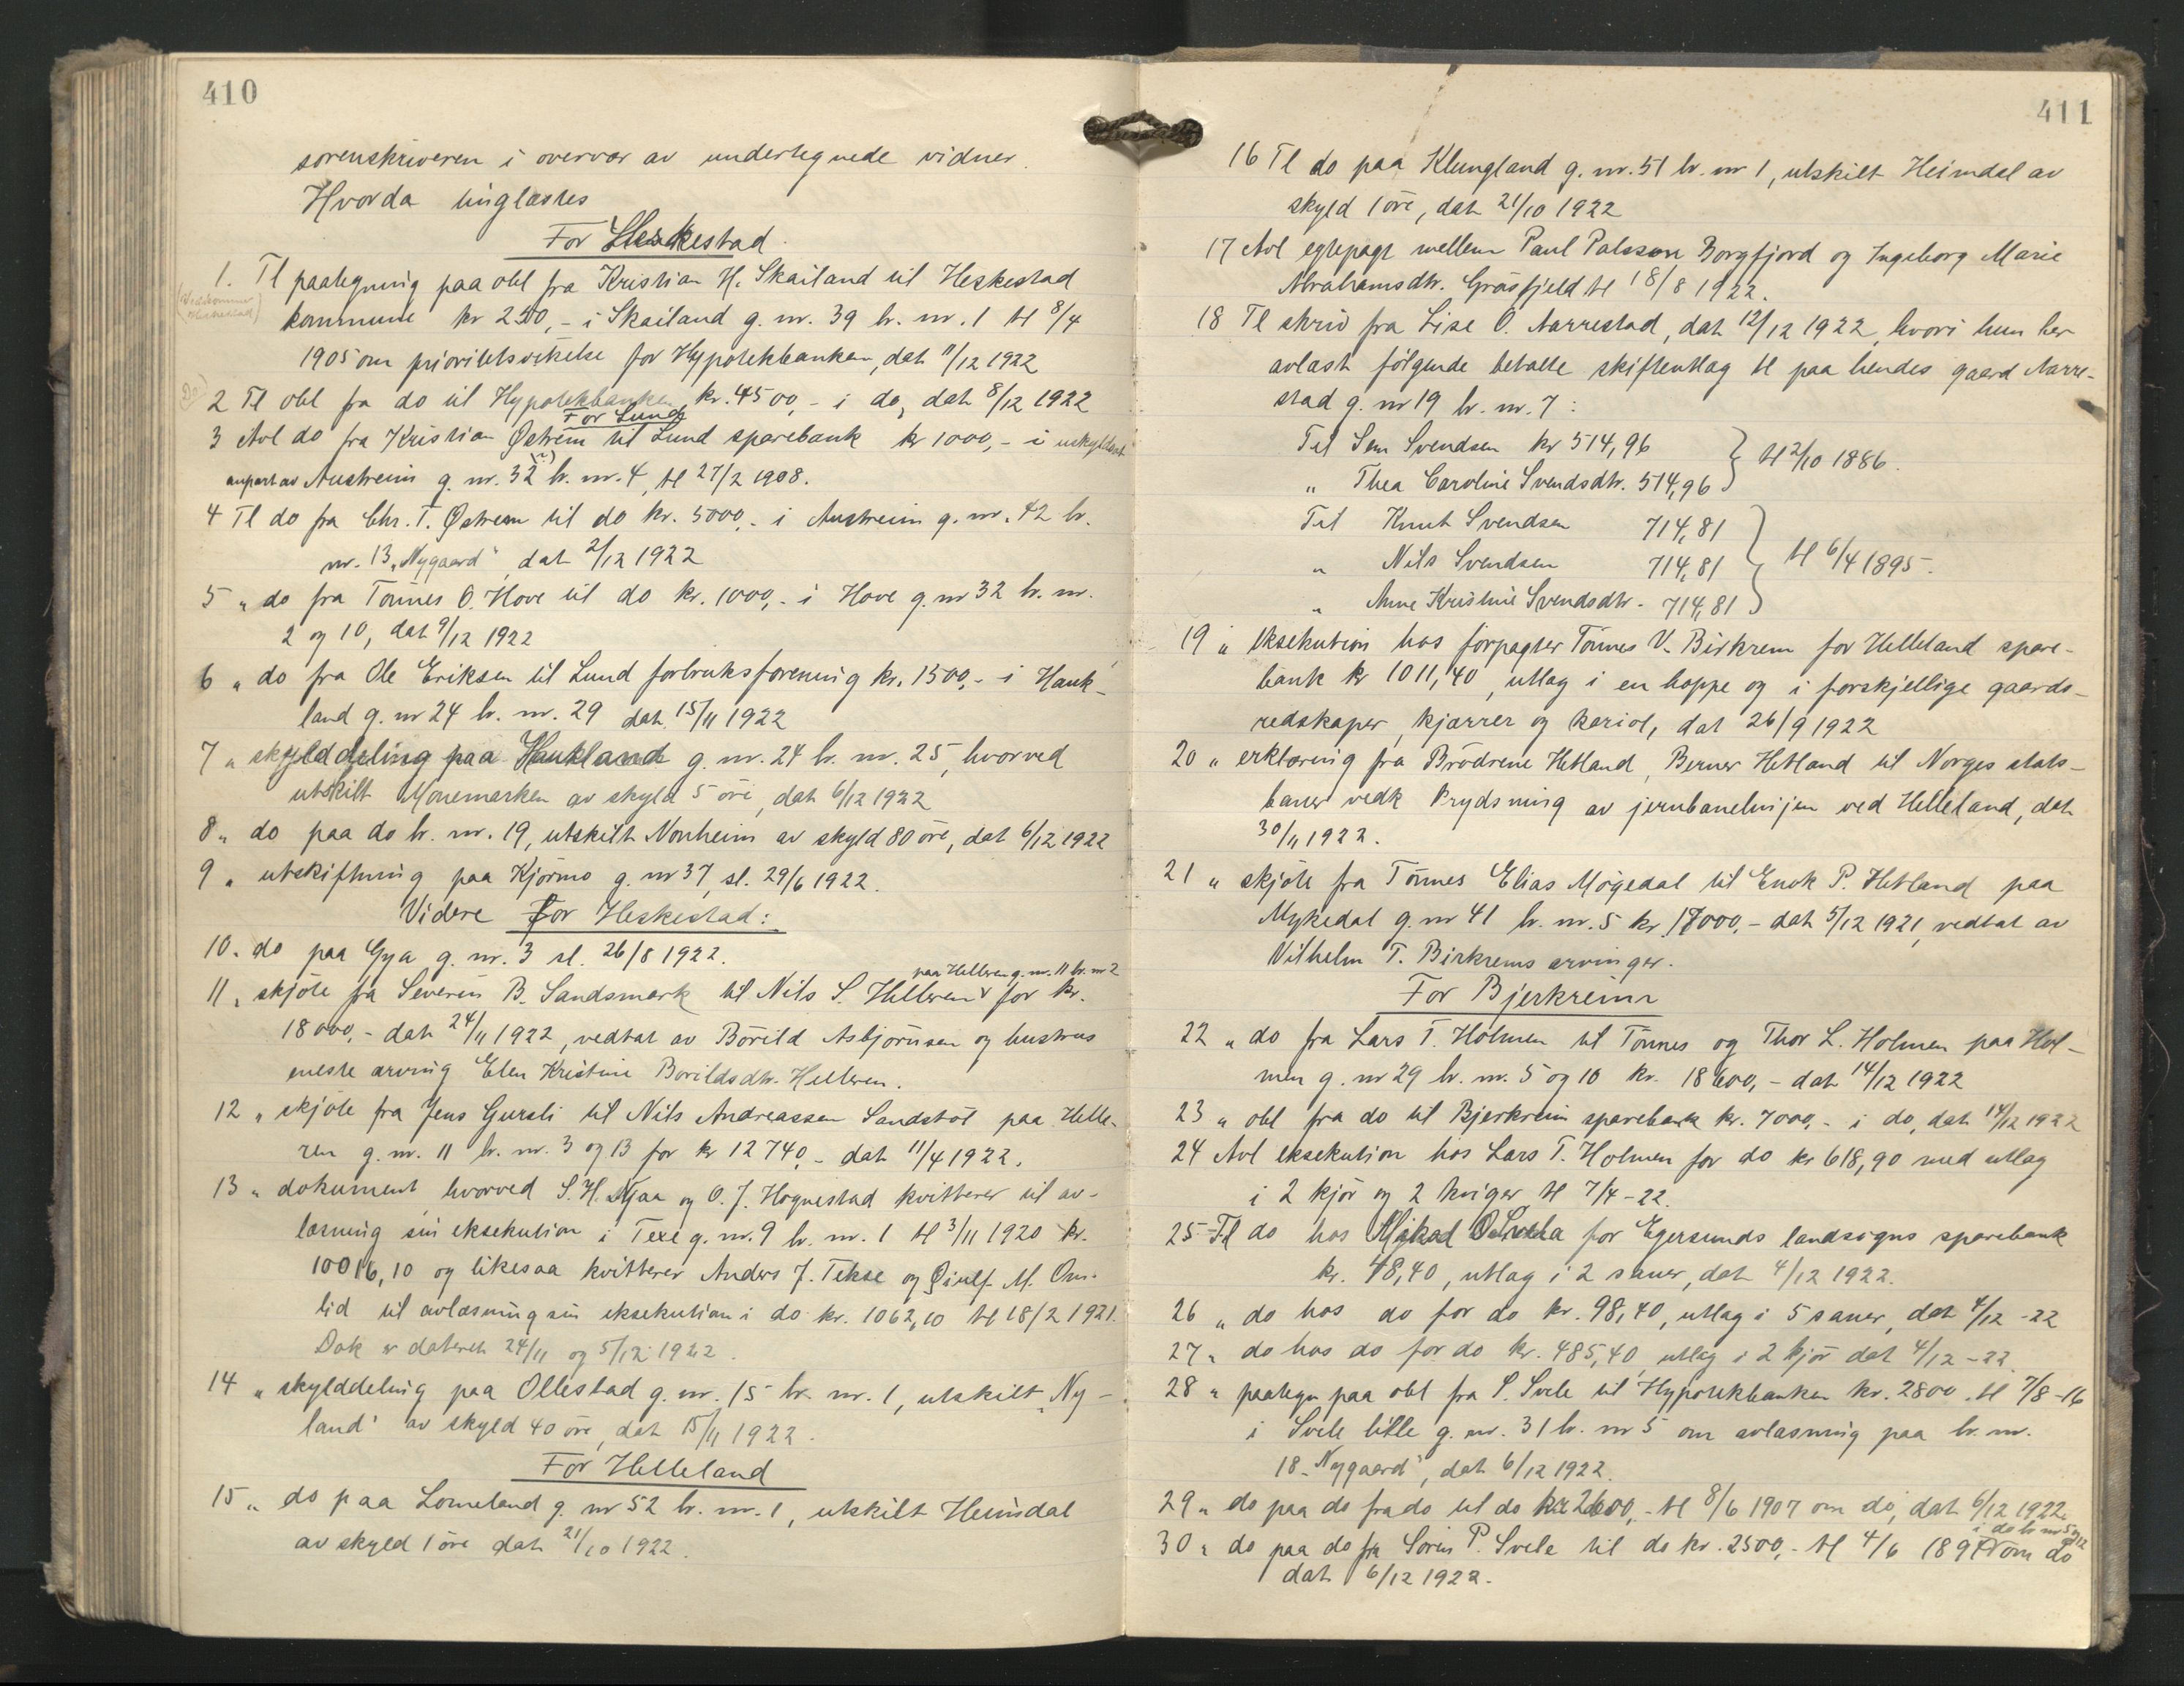 410
sorenskriveren i overvær av undertegnede vidner.
Hvorda tinglæstes
For Heskestad.
1. Tl paategning paa obl fra Kristian H. Skailand til Heskestad
kommune kr 2500,- i Skailand g. nr. 39 br. nr. 1 tl 8/4
1905 om prioritetsvikelse for Hypotekbanken, dat 11/12 1922
2 Tl obl fra do til Hypotekbanken kr. 4500,- i do, dat 8/12 1922
For Lund
3 Avl do fra Kristian Østrem til Lund sparebank kr 1000,- i uskyldsat
anpart av Austreim g. nr. 32 (?) br. nr. 4, tl 27/2 1908.
4 Tl do fra Chr. T. Østrem til do kr. 5000,- i Austreim g. nr. 42 br.
nr. 13 „Nygaard“, dat 2/12 1922
5 " do fra Tönnes O. Hove til do kr. 1000,- i Hove g. nr 32 br. nr.
2 og 10, dat 9/12 1922
6 " do fra Ole Eriksen til Lund forbruksforening kr. 1500,- i Hauk-
land g. nr 24 br. nr. 29 dat 15/11 1922
7 " skylddeling paa Haukland g. nr. 24 br. nr. 25, hvorved
utskilt Monemarken av skyld 5 öre, dat 6/12 1922
8 " do paa do br. nr. 19, utskilt Nonheim av skyld 80 öre, dat 6/12 1922
9 " utskiftning paa Kjörmo g. nr 37, sl. 29/6 1922.
Videre For Heskestad:
10 " do paa Gya g. nr. 3 sl. 26/8 1922.
paa Hellren g. nr. 11 br. nr 2
11 " skjöte fra Severin B. Sandsmark til Nils S. Helleren for kr.
18000,- dat 24/11 1922, vedtat av Börild Asbjörnsen og hustrus
eneste arving Elen Kristine Borildsdtr. Helleren.
12 " skjöte fra Jens Gursli til Nils Andreassen Sandstöl paa Helle-
ren g. nr. 11 br. nr. 3 og 13 for kr 12740,- dat 11/4 1922.
13 " dokument, hvorved S. H. Njaa og O. J. Hognestad kvitterer til av-
læsning sin eksekution i Texe g. nr. 9 br. nr. 1 tl 3/11 1920 kr.
10016,10 og likesaa kvitterer Anders J. Tekse og Øiulf M. Om-
lid til avlæsning sin eksekution i do kr. 1062,10 tl 18/2 1921.
Dok er datert 24/11 og 5/12 1922.
14 " skylddeling paa Ollestad g. nr. 15 br. nr. 1, utskilt „Ny-
land“ av skyld 40 öre, dat 15/11 1922.
For Helleland
15 " do paa Lomeland g. nr 52 br. nr. 1, utskilt Heimdal
av skyld 1 öre dat 21/10 1922.
411
16 Tl do paa Klungland g. nr. 51 br. nr 1, utskilt Heimdal av
skyld 1 öre, dat 21/10 1922
17 Avl egtepagt mellem Paul Palsson Borgfjord og Ingeborg Marie
Abrahamsdtr. Gräsfjeld tl 18/8 1922.
18 Tl skriv fra Lise O. Aarrestad, dat 12/12 1922, hvori hun her
avlæst fölgende betalte skifteutlæg tl paa hendes gaard Aarre-
stad g. nr 19 br. nr. 7:
Til Sem Svendsen kr 514,96
" Thea Caroline Svendsdtr. 514,96 } tl 2/10 1886.
Til Knut Svendsen 714,81
" Nils Svendsen 714,81 } tl 6/4 1895.
" Anne Kristine Svendsdtr. 714,81
19 " eksekution hos forpagter Tönnes V. Birkrem for Helleland spare-
bank kr 1011,40, utlæg i en hoppe og i forskjellige gaards-
redskaper, kjærrer og kariol, dat 26/9 1922
20 " erklæring fra Brödrene Hetland, Berner Hetland til Norges stats-
baner vedk krydsning av jernbanelinjen ved Helleland, dat
30/11 1922.
21 " skjöte fra Tönnes Elias Mögedal til Enok P. Hetland paa
Mykedal g. nr 41 br. nr. 5 kr 17000,- dat 5/12 1921, vedtat av
Vilhelm T. Birkrems arvinger.
For Bjerkreim
22 " do fra Lars T. Holmen til Tönnes og Thor L. Holmen paa Hol-
men g. nr 29 br. nr. 5 og 10 kr. 18600,- dat 14/12 1922
23 " obl fra do til Bjerkreim sparebank kr. 7000,- i do, dat 14/12 1922
24 Avl eksekution hos Lars T. Holmen for do kr 618,90 med utlæg
i 2 kjör og 2 kviger, tl 7/4 -22.
25 Tl do hos for Egersunds landsogns sparebank
kr. 48,40, utlæg i 2 sauer, dat 4/12 1922.
26 " do hos do for do kr. 98,40, utlæg i 5 sauer, dat 4/12 -22
27 " do hos do for do kr. 485,40 utlæg i 2 kjör dat 4/12 -22.
28 " paategn paa obl fra S. Svele til Hypotekbanken kr. 2800. tl 7/8 -16
i Svele lille g. nr. 31 br. nr 5 om avlæsning paa br. nr.
18 „Nygaard“, dat 6/12 1922.
29 " do paa do fra do til do kr 2600,- tl 8/6 1907 om do, dat 6/12 1922.
i do br nr 5 og 12
30 " do paa do fra Sören P. Svele til do kr. 2500,- tl 4/6 1897 om do
dat 6/12 1922.